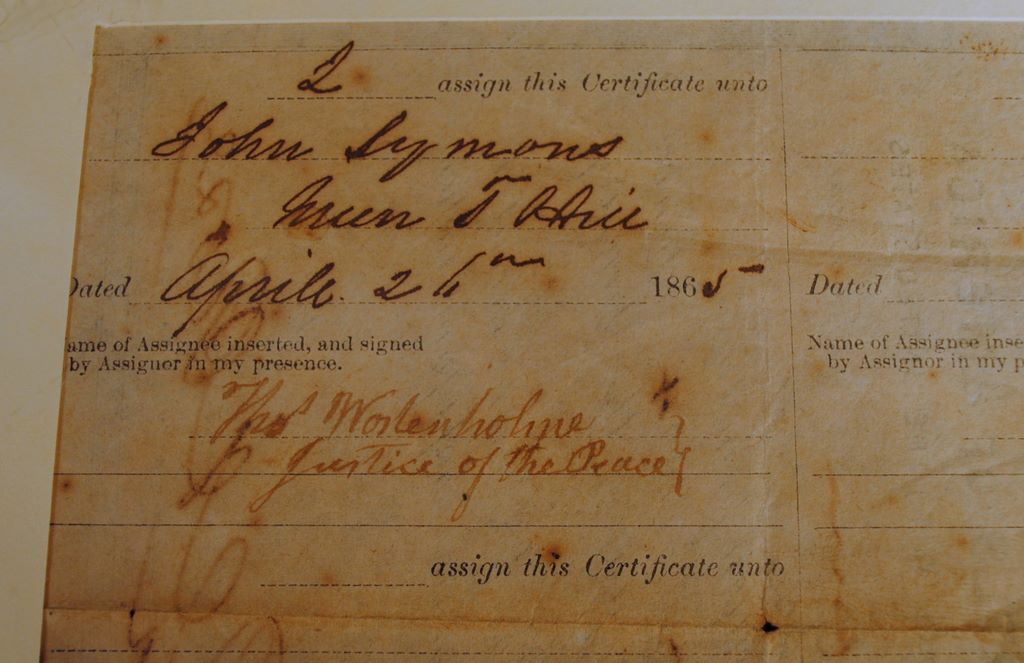 I assign this Certificate unto
John Symons
T Hill
Dated April 26th 1865
ame of Assignee inserted, and signed
by Assignor in my presence.
Thos Wostenholme
Justice of the Peace
assign this Certificate unto
Dated
Name of Assignee inse
by Assignor in my p